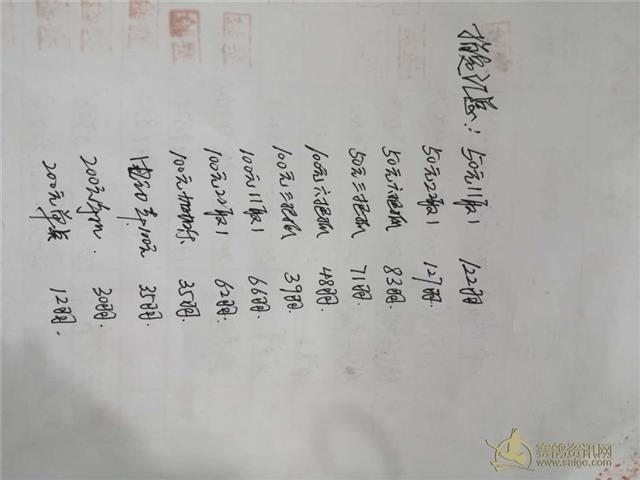 指定汇总:
50元11取1 122羽
50元22取1 127羽
50元六把抓 83羽
50元三把抓 71羽
100元六把抓 48羽
100元三把抓 39羽
100元11取1 66羽
100元22取1 62羽
100元 35羽.
100元 35羽.
200元 30羽.
200元单关 12羽.
赛鸽资讯网
www.saige.com